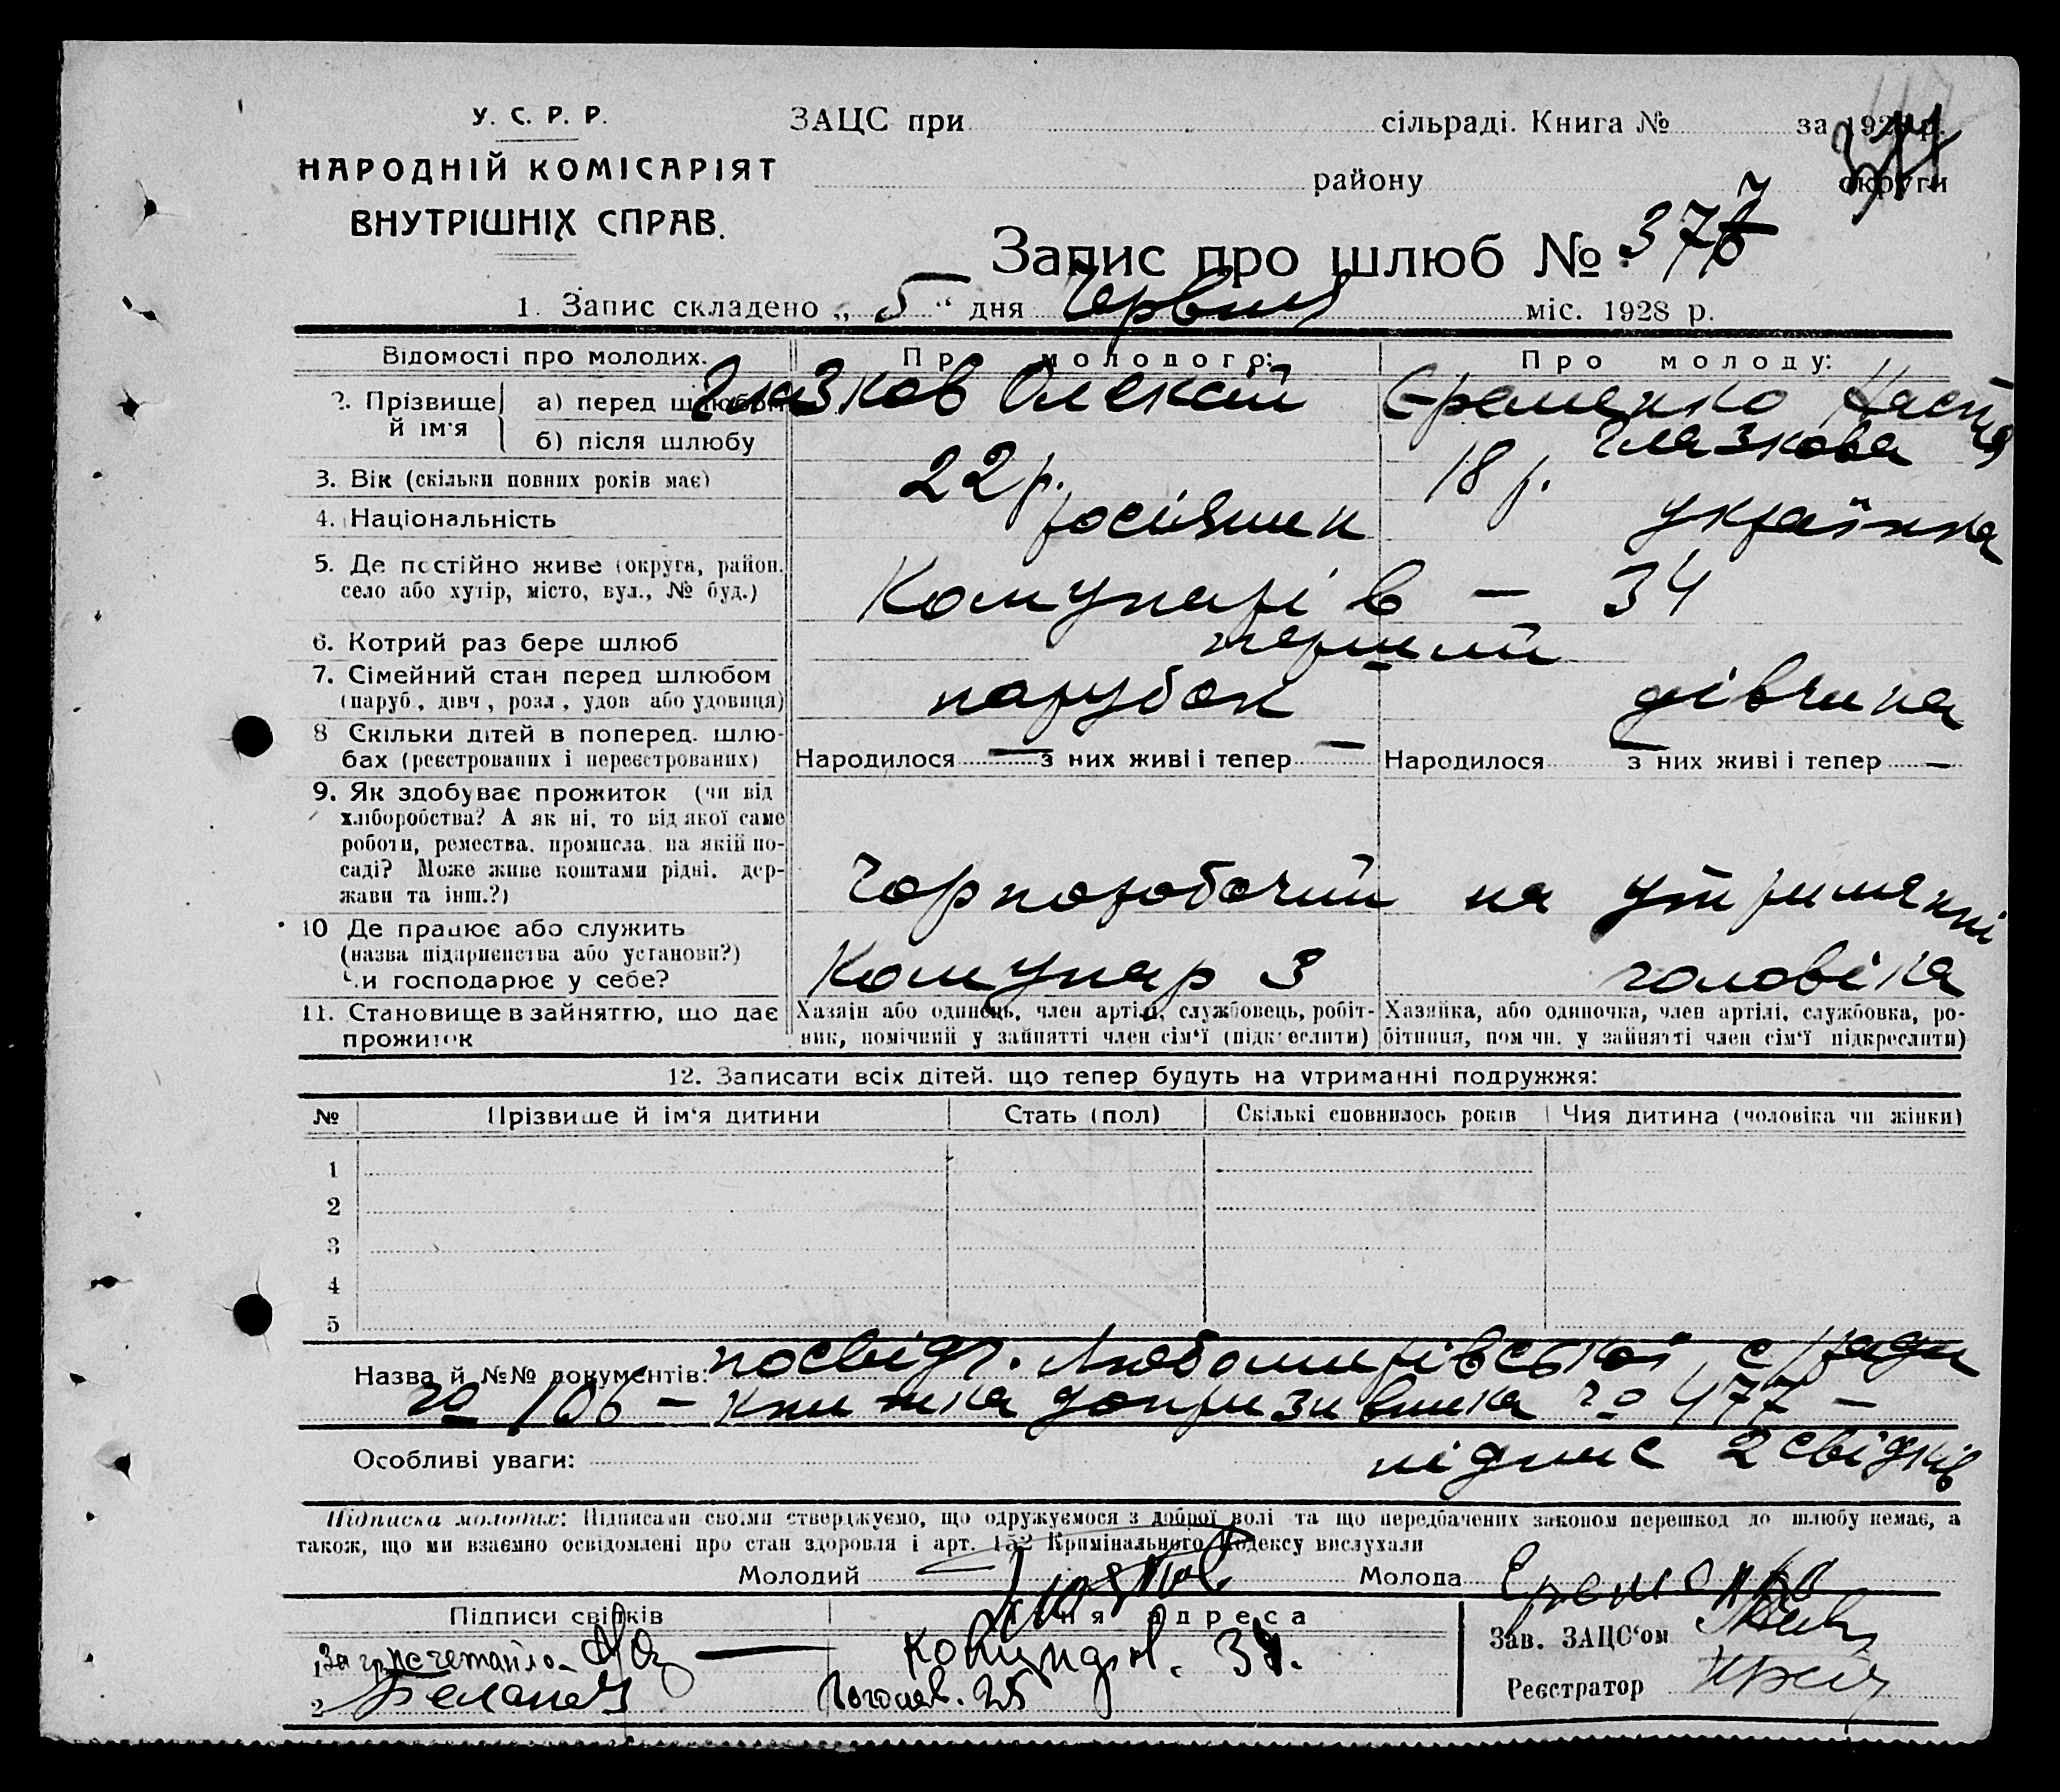 У. С. Р. Р.
НАРОДНІЙ КОМІСАРІЯТ
ВНУТРІШНІХ СПРАВ.
ЗАЦС при сільраді. Книга № за 192 р.
району округи
Запис про шлюб № 377
1. Запис складено „ 5 “ дня Червня міс. 1928 р.
Відомості про молодих. Про молодого: Про молоду:
2. Прізвище й ім'я а) перед шлюбом Глазков Олексій Єременко Настя
б) після шлюбу Глазкова
3. Вік (скільки повних років має) 22 р. 18 р.
4. Національність росіянин українка
5. Де постійно живе (округа, район, село або хутір, місто, вул., № буд.) Комунарів — 34
6. Котрий раз бере шлюб перший
7. Сімейний стан перед шлюбом (паруб., дівч., розл., удов. або удовиця) парубок дівчина
8 Скільки дітей в поперед. шлюбах (реєстрованих і нереєстрованих) Народилося — з них живі і тепер — Народилося — з них живі і тепер —
9. Як здобуває прожиток (чи від хліборобства? А як ні, то від якої саме роботи, ремества, промисла, на якій посаді? Може живе коштами рідні, держави та інш.?) Чорноробочий на утриманні
10 Де працює або служить (назва підприємства або установи?) Чи господарює у себе? Комунар 3 чоловіка
11. Становище в зайняттю, що дає прожиток
Хазяїн або одинець, член артілі, службовець, робітник, помічний у зайнятті член сім'ї (підкреслити)
Хазяйка, або одиночка, член артілі, службовка, робітниця, помічн. у зайнятті член сім'ї підкреслити)
12. Записати всіх дітей, що тепер будуть на утриманні подружжя:
№ Прізвище й ім'я дитини Стать (пол) Скількі сповнилось років Чия дитина (чоловіка чи жінки)
1
2
3
4
5
Назва й №№ документів: посвідч. Любомирівської с/ради
№ 106 — книжка допризивника № 477 —
Особливі уваги: підпис 2 свідків
Підписка молодих: Підписами своїми стверджуємо, що одружуємося з доброї волі та що передбачених законом перешкод до шлюбу немає, а
також, що ми взаємно освідомлені про стан здоровля і арт. 152 Кримінального Кодексу вислухали
Молодий Глазков Молода Еременко
Підписи свідків Їхня адреса
1 За грамотайло- — Комунарів. 34.
2 Гоголев. 25
Зав. ЗАЦС'ом
Реєстратор